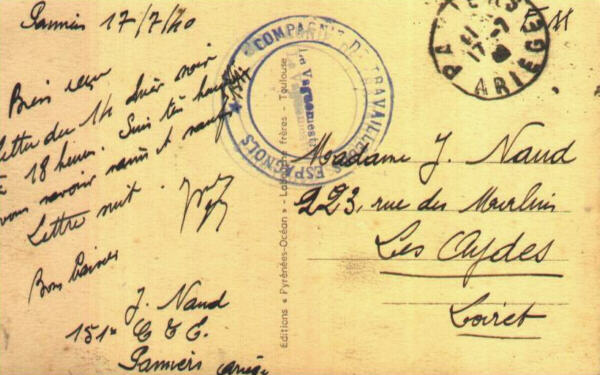 Pamiers 17/7/40
Bien reçu
lettre du 14 hier soir
à 18 heures. Suis très heureux
vous savoir sains et saufs
Lettre suit.
Bons baisers
J. Naud
151e C T E.
Pamiers Ariège
COMPAGNIE DE TRAVAILLEURS ESPAGNOLS
Le Vaguemestre
Editions « Pyrénées-Océan » - frères - Toulouse
PAMIERS
17 -7
ARIEGE
F M
Madame J. Naud
223, rue des
Les Aydes
Loiret